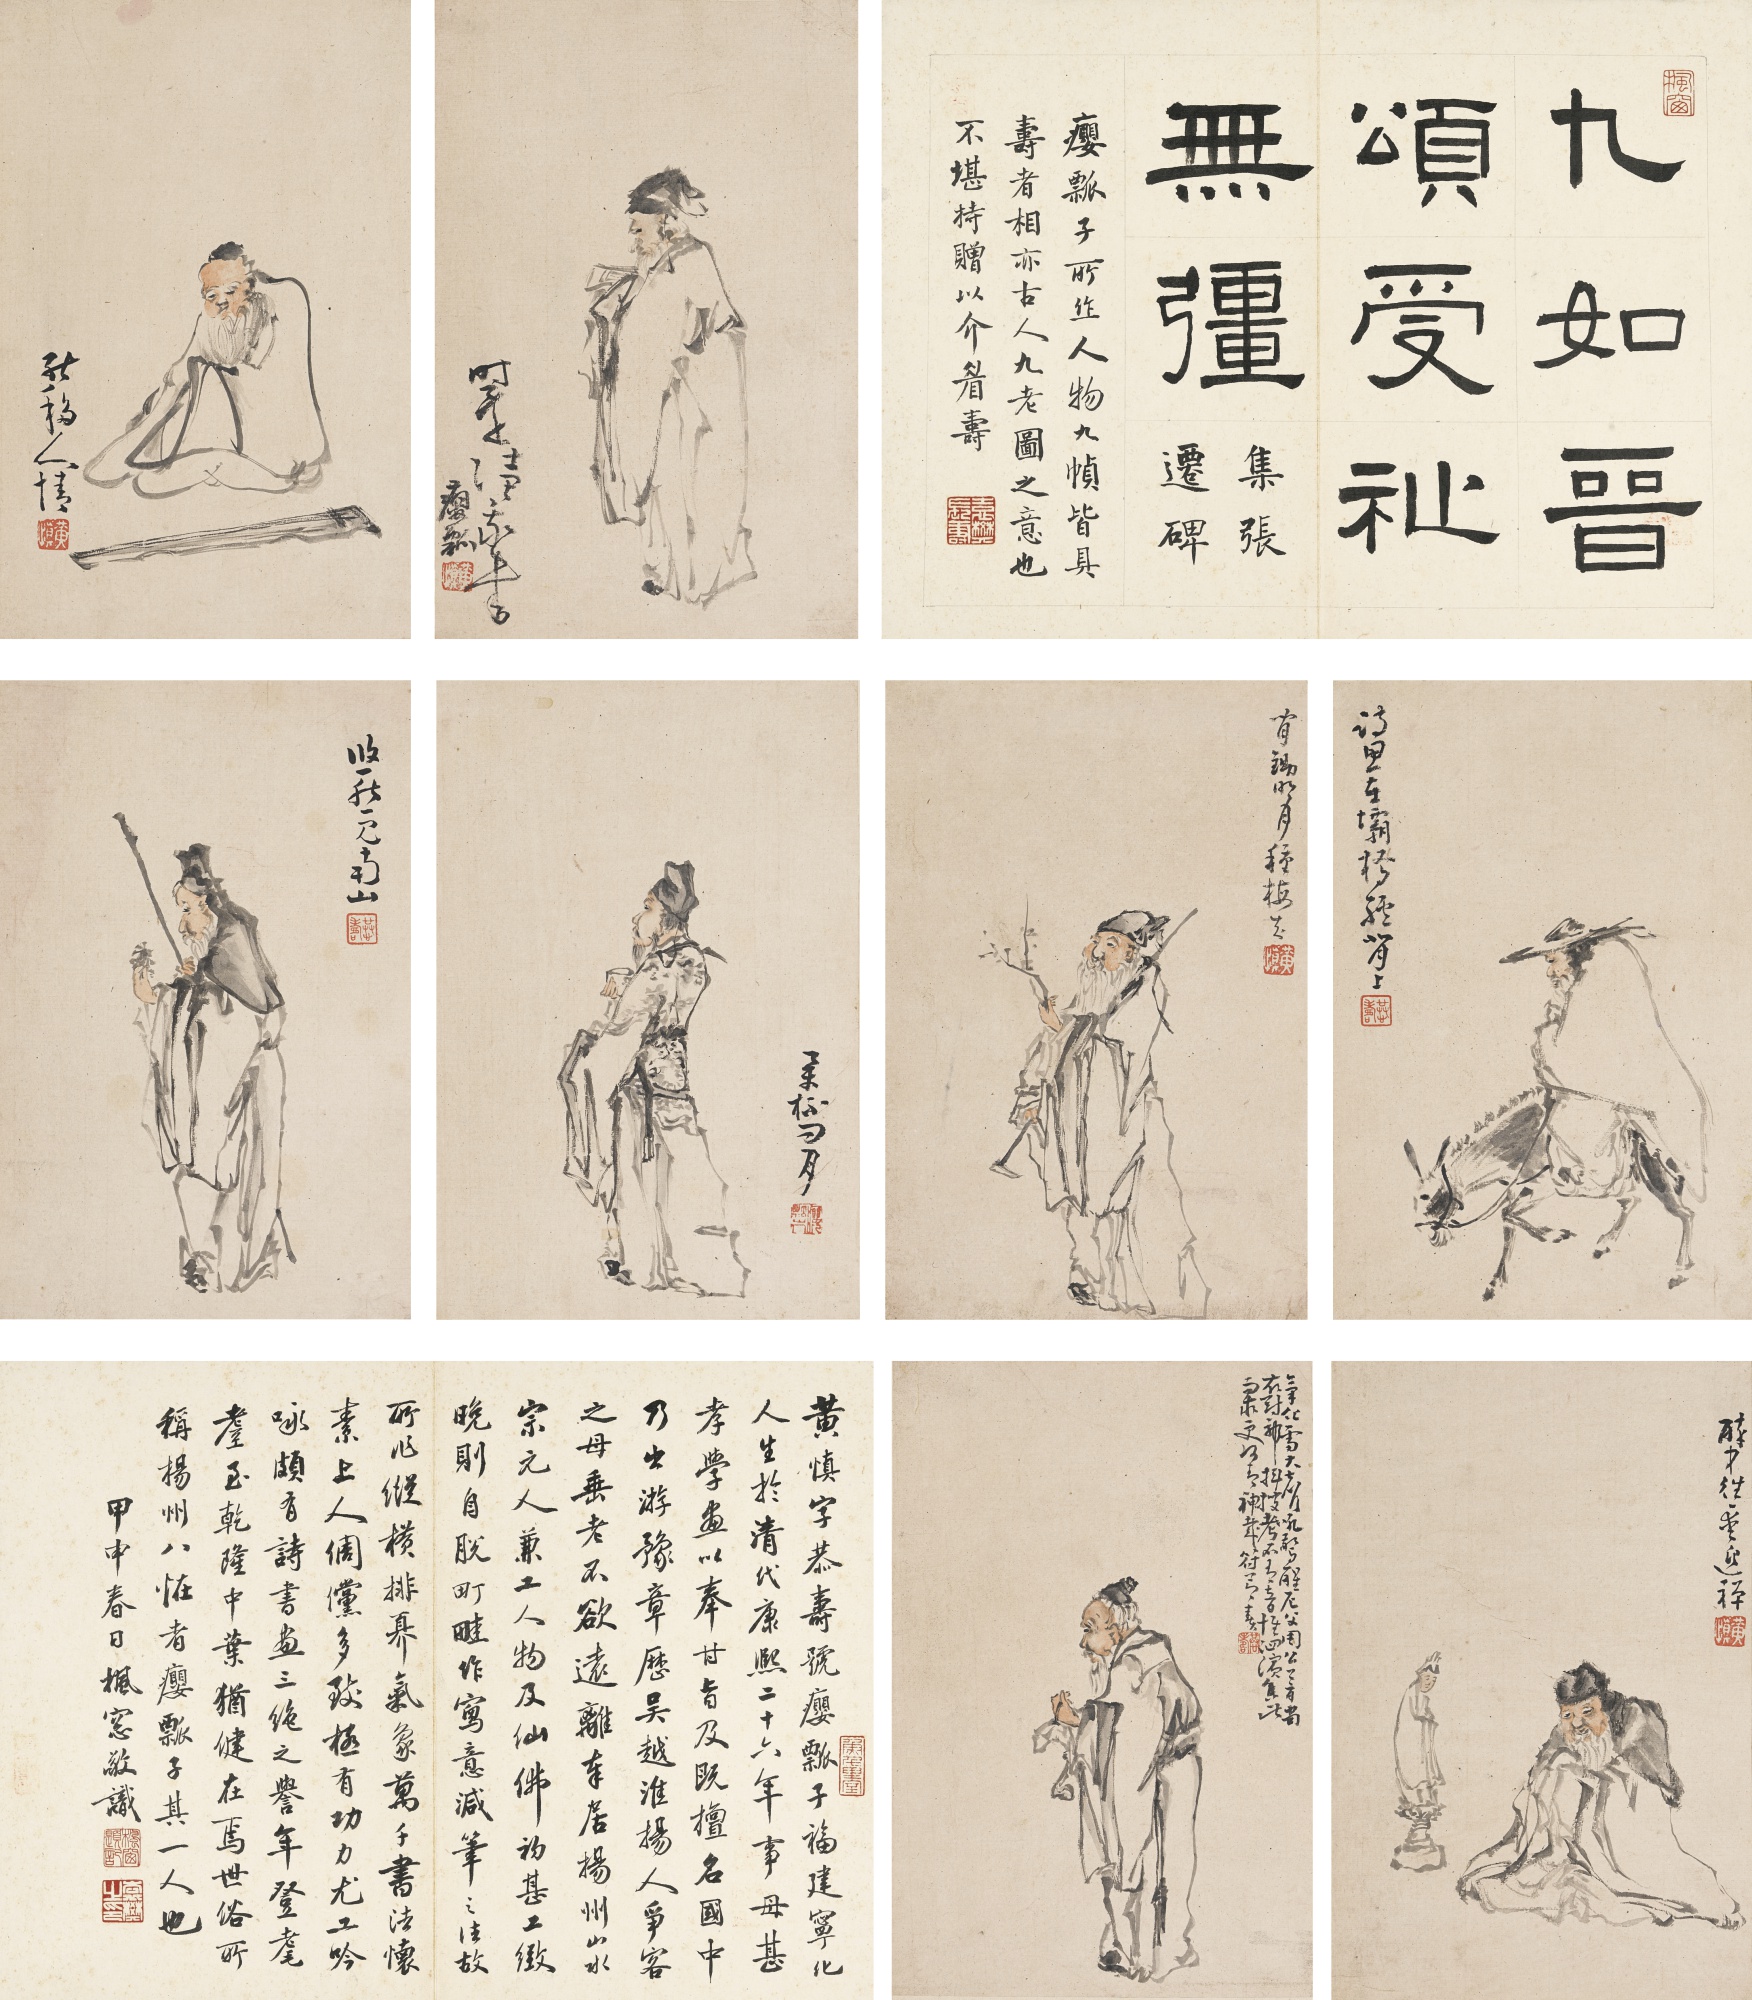 楓窗
九如晉
頌受祉
無彊
集張
遷碑
癭瓢子所作人物九幀皆具
壽者相亦古人九老圖之意也
不堪持贈以介眉壽
癭瓢
黃慎
能移人情
黃慎
詩思在壩橋驢背上
恭壽
肯鋤明月種梅花
黃慎
舉杯問月
悠然見南山
恭壽
醉中往往愛逃禪
黃慎
黃慎字恭壽號癭瓢子福建寧化
人生於清代康熙二十六年事母甚
孝學畫以奉甘旨及既擅名國中
乃出游豫章歷吳越淮揚人爭客
之母垂老不欲遠離奉居揚州山水
宗元人兼工人物及仙佛初甚工緻
晚則自脫町畦作寫意減筆之法故
所作縱橫排奡氣象萬千書法懷
素上人倜儻多致極有功力尤工吟
咏頗有詩書畫三絕之譽年登耄
耋至乾隆中葉猶健在焉世俗所
稱揚州八怪者癭瓢子其一人也
甲申春日楓窗敬識